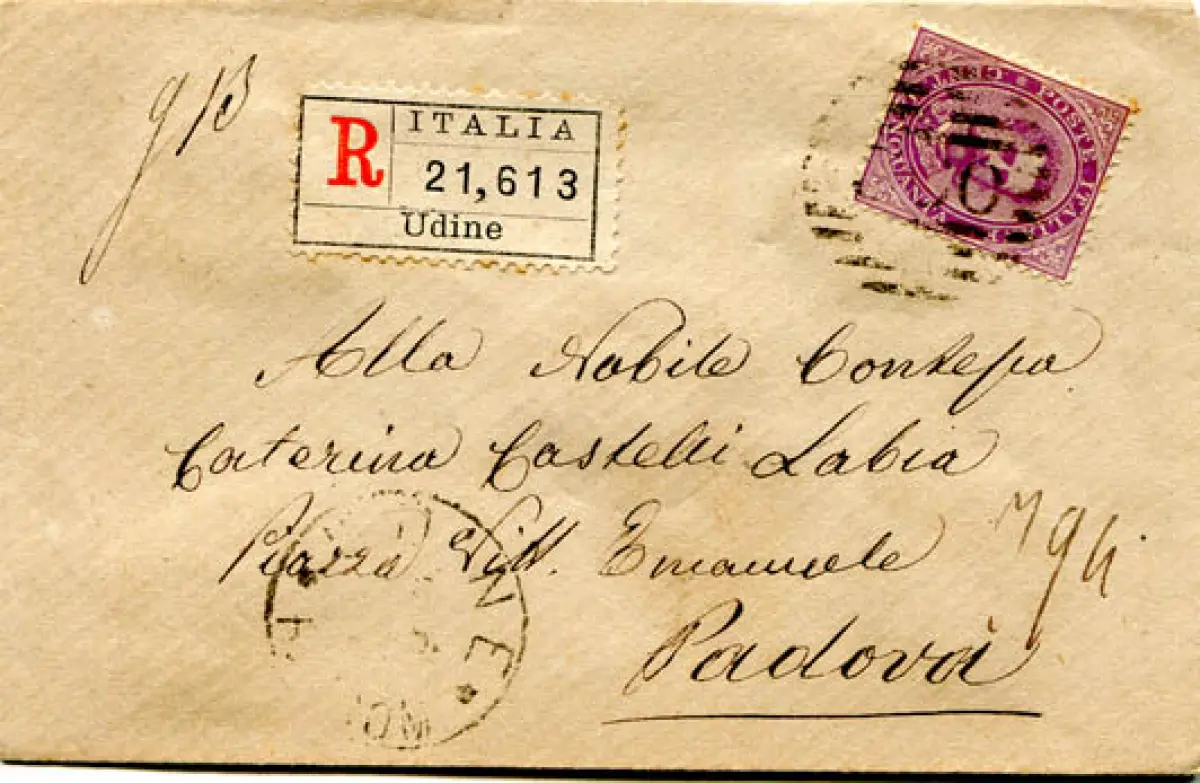 R ITALIA
21,613
Udine
POSTE ITALIANE
Alla Nobile Contessa
Caterina Castelli Labia
Piazza Vitt. Emanuele
Padova